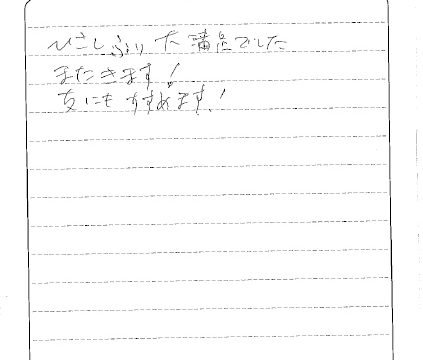 ひさしぶり 大満足でした
またきます!
友にもすすめます!